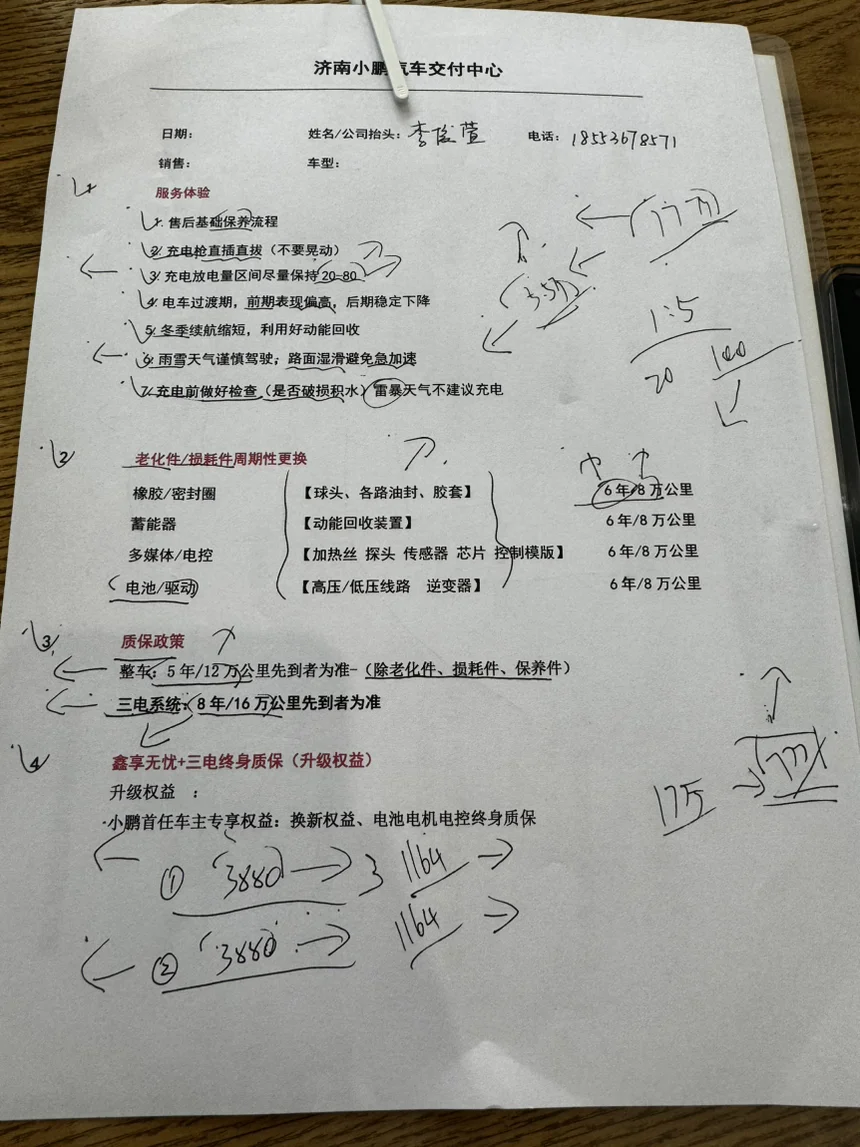 济南小鹏汽车交付中心
日期： 姓名/公司抬头：李俊萱 电话：18553678571
销售： 车型：
1
服务体验
1. 售后基础保养流程
2. 充电枪直插直拔（不要晃动）
3. 充电放电量区间尽量保持 20-80
4. 电车过渡期，前期表现偏高，后期稳定下降
5. 冬季续航缩短，利用好动能回收
6. 雨雪天气谨慎驾驶；路面湿滑避免急加速
7. 充电前做好检查（是否破损积水）雷暴天气不建议充电
17万
3.5万
1:5
20 100
2
老化件/损耗件周期性更换
橡胶/密封圈 【球头、各路油封、胶套】 6年/8万公里
蓄能器 【动能回收装置】 6年/8万公里
多媒体/电控 【加热丝 探头 传感器 芯片 控制模版】 6年/8万公里
电池/驱动 【高压/低压线路 逆变器】 6年/8万公里
3
质保政策
整车：5年/12万公里先到者为准-（除老化件、损耗件、保养件）
三电系统：8年/16万公里先到者为准
4
鑫享无忧+三电终身质保（升级权益）
升级权益 ：
·小鹏首任车主专享权益：换新权益、电池电机电控终身质保
17万
① 3880 3 1164
② 3880 1164